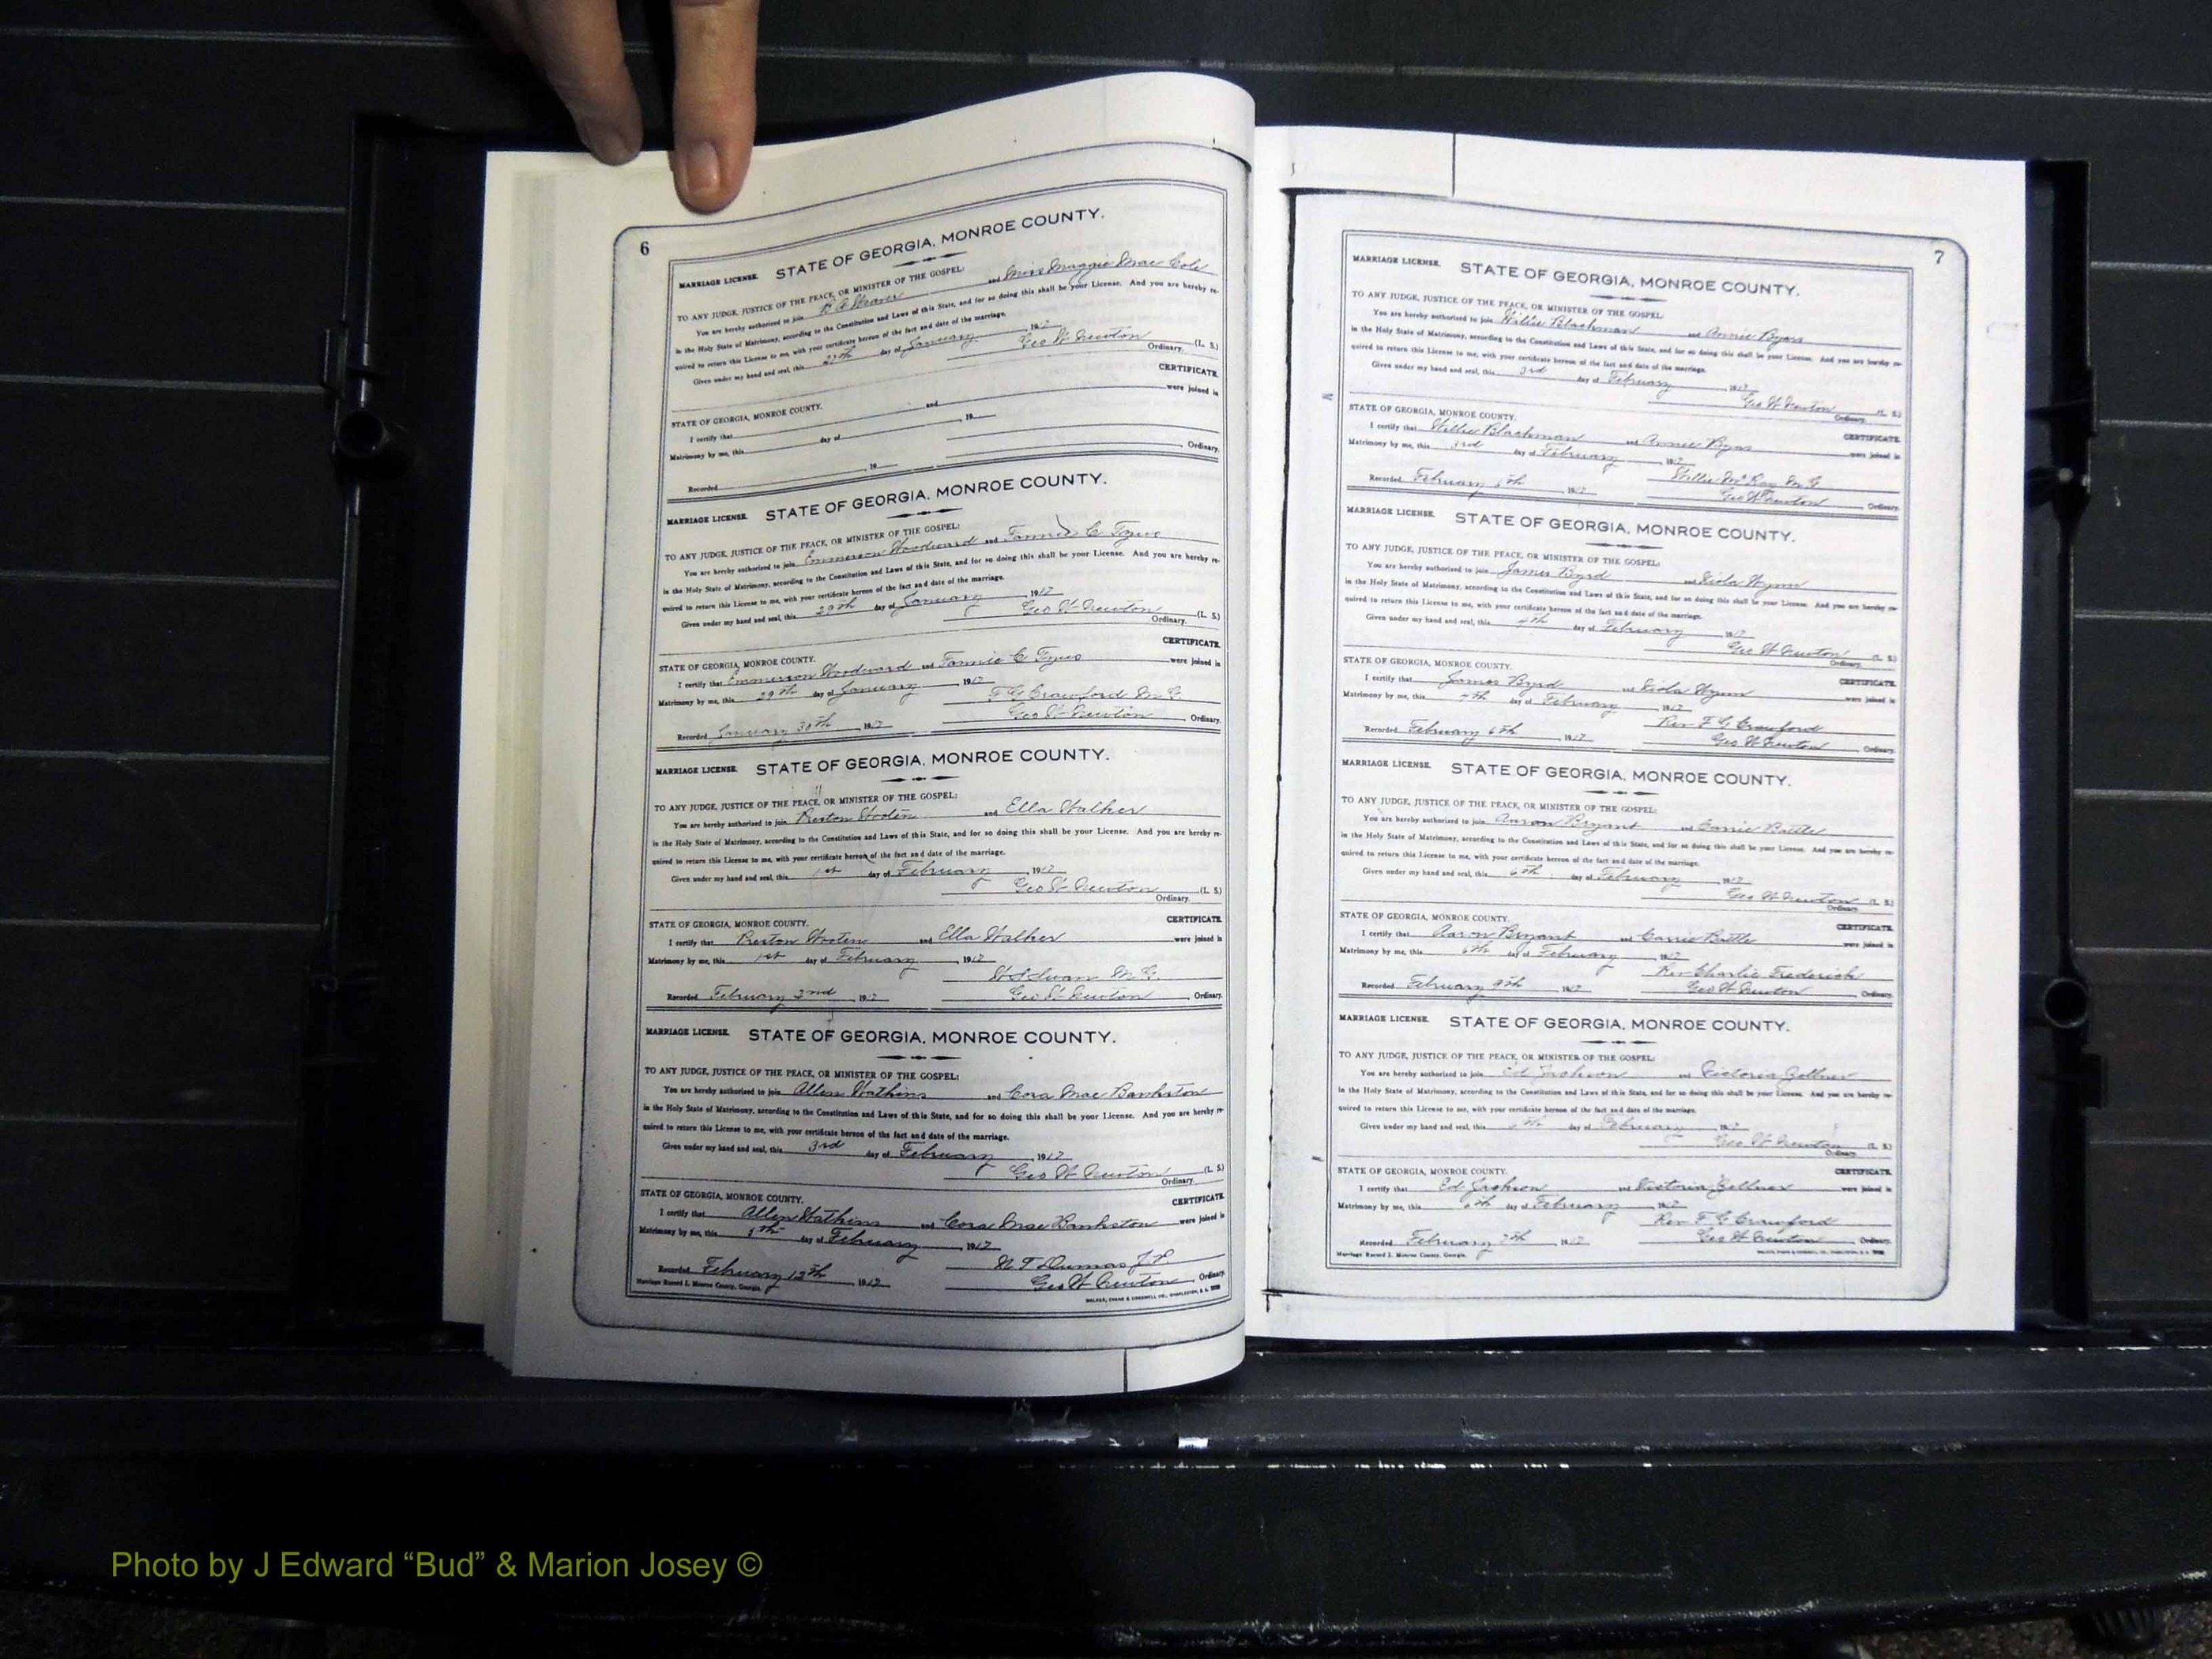 6
MARRIAGE LICENSE. STATE OF GEORGIA, MONROE COUNTY.
TO ANY JUDGE, JUSTICE OF THE PEACE, OR MINISTER OF THE GOSPEL:
You are hereby authorized to join and Miss Maggie Mae Cole
in the Holy State of Matrimony, according to the Constitution and Laws of this State, and for so doing this shall be your License. And you are hereby re-
quired to return this License to me, with your certificate hereon of the fact and date of the marriage.
Given under my hand and seal, this 27th day of January, 1917
Geo W Newton (L. S.)
Ordinary.
CERTIFICATE.
STATE OF GEORGIA, MONROE COUNTY.
I certify that and were joined in
Matrimony by me, this day of , 19
Recorded , 19 , Ordinary.
MARRIAGE LICENSE. STATE OF GEORGIA, MONROE COUNTY.
TO ANY JUDGE, JUSTICE OF THE PEACE, OR MINISTER OF THE GOSPEL:
You are hereby authorized to join Emmerson Woodward and Fannie C Tyus
in the Holy State of Matrimony, according to the Constitution and Laws of this State, and for so doing this shall be your License. And you are hereby re-
quired to return this License to me, with your certificate hereon of the fact and date of the marriage.
Given under my hand and seal, this 29th day of January, 1917
Geo W Newton (L. S.)
Ordinary.
CERTIFICATE.
STATE OF GEORGIA, MONROE COUNTY.
I certify that Emmerson Woodward and Fannie C Tyus were joined in
Matrimony by me, this 29th day of January, 1917
F G Crawford M. G.
Recorded January 30th, 1917 Geo W Newton, Ordinary.
MARRIAGE LICENSE. STATE OF GEORGIA, MONROE COUNTY.
TO ANY JUDGE, JUSTICE OF THE PEACE, OR MINISTER OF THE GOSPEL:
You are hereby authorized to join Preston Wooten and Ella Walker
in the Holy State of Matrimony, according to the Constitution and Laws of this State, and for so doing this shall be your License. And you are hereby re-
quired to return this License to me, with your certificate hereon of the fact and date of the marriage.
Given under my hand and seal, this 1st day of February, 1917
Geo W Newton (L. S.)
Ordinary.
CERTIFICATE.
STATE OF GEORGIA, MONROE COUNTY.
I certify that Preston Wooten and Ella Walker were joined in
Matrimony by me, this 1st day of February, 1917
Swan M. G.
Recorded February 2nd, 1917 Geo W Newton, Ordinary.
MARRIAGE LICENSE. STATE OF GEORGIA, MONROE COUNTY.
TO ANY JUDGE, JUSTICE OF THE PEACE, OR MINISTER OF THE GOSPEL:
You are hereby authorized to join Allen Watkins and Cora Mae Bankston
in the Holy State of Matrimony, according to the Constitution and Laws of this State, and for so doing this shall be your License. And you are hereby re-
quired to return this License to me, with your certificate hereon of the fact and date of the marriage.
Given under my hand and seal, this 3rd day of February, 1917
Geo W Newton (L. S.)
Ordinary.
CERTIFICATE.
STATE OF GEORGIA, MONROE COUNTY.
I certify that Allen Watkins and Cora Mae Bankston were joined in
Matrimony by me, this day of February, 1917
N T Dumas J. P.
Recorded February 12th, 1917 Geo W Newton, Ordinary.
Marriage Record I. Monroe County, Georgia. WALKER, EVANS & COGSWELL CO., CHARLESTON, S. C.
7
MARRIAGE LICENSE. STATE OF GEORGIA, MONROE COUNTY.
TO ANY JUDGE, JUSTICE OF THE PEACE, OR MINISTER OF THE GOSPEL:
You are hereby authorized to join Willie Blackman and Annie Byars
in the Holy State of Matrimony, according to the Constitution and Laws of this State, and for so doing this shall be your License. And you are hereby re-
quired to return this License to me, with your certificate hereon of the fact and date of the marriage.
Given under my hand and seal, this 3rd day of February, 1917
Geo W Newton (L. S.)
Ordinary.
STATE OF GEORGIA, MONROE COUNTY.
CERTIFICATE.
I certify that Willie Blackman and Annie Byars were joined in
Matrimony by me, this 3rd day of February, 1917
Willie M. G.
Recorded February, 1917 Geo W Newton, Ordinary.
MARRIAGE LICENSE. STATE OF GEORGIA, MONROE COUNTY.
TO ANY JUDGE, JUSTICE OF THE PEACE, OR MINISTER OF THE GOSPEL:
You are hereby authorized to join James Byrd and Viola Wynn
in the Holy State of Matrimony, according to the Constitution and Laws of this State, and for so doing this shall be your License. And you are hereby re-
quired to return this License to me, with your certificate hereon of the fact and date of the marriage.
Given under my hand and seal, this 4th day of February, 1917
Geo W Newton (L. S.)
Ordinary.
STATE OF GEORGIA, MONROE COUNTY.
CERTIFICATE.
I certify that James Byrd and Viola Wynn were joined in
Matrimony by me, this 4th day of February, 1917
Rev F G Crawford
Recorded February 6th, 1917 Geo W Newton, Ordinary.
MARRIAGE LICENSE. STATE OF GEORGIA, MONROE COUNTY.
TO ANY JUDGE, JUSTICE OF THE PEACE, OR MINISTER OF THE GOSPEL:
You are hereby authorized to join Aaron Bryant and Carrie Battle
in the Holy State of Matrimony, according to the Constitution and Laws of this State, and for so doing this shall be your License. And you are hereby re-
quired to return this License to me, with your certificate hereon of the fact and date of the marriage.
Given under my hand and seal, this 6th day of February, 1917
Geo W Newton (L. S.)
Ordinary.
STATE OF GEORGIA, MONROE COUNTY.
CERTIFICATE.
I certify that Aaron Bryant and Carrie Battle were joined in
Matrimony by me, this 6th day of February, 1917
Rev Charlie Frederick
Recorded February 9th, 1917 Geo W Newton, Ordinary.
MARRIAGE LICENSE. STATE OF GEORGIA, MONROE COUNTY.
TO ANY JUDGE, JUSTICE OF THE PEACE, OR MINISTER OF THE GOSPEL:
You are hereby authorized to join Ed Jackson and Victoria Zellner
in the Holy State of Matrimony, according to the Constitution and Laws of this State, and for so doing this shall be your License. And you are hereby re-
quired to return this License to me, with your certificate hereon of the fact and date of the marriage.
Given under my hand and seal, this day of February, 1917
Geo W Newton (L. S.)
Ordinary.
STATE OF GEORGIA, MONROE COUNTY.
CERTIFICATE.
I certify that Ed Jackson and Victoria Zellner were joined in
Matrimony by me, this 6th day of February, 1917
Rev F G Crawford
Recorded February 7th, 1917 Geo W Newton, Ordinary.
Marriage Record I. Monroe County, Georgia. WALKER, EVANS & COGSWELL CO., CHARLESTON, S. C.
Photo by J Edward “Bud” & Marion Josey ©